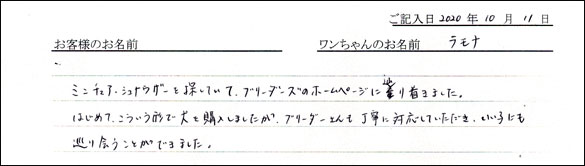 ご記入日 2020 年 10 月 11 日
お客様のお名前 ワンちゃんのお名前 ラモナ
ミニチュアシュナウザーを探していて、ブリーダーズのホームページに辿り着きました。
はじめて、こういう形で犬を購入しましたが、ブリーダーさんも丁寧に対応していただき、いい子にも
巡り会うことができました。